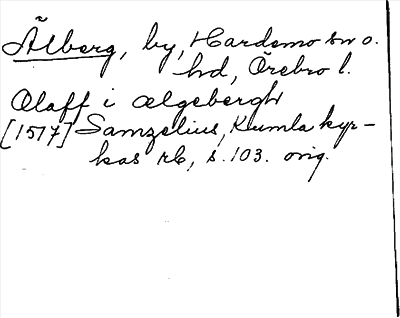 Älberg, by, Hardemo sn o.
hd, Örebro l.
Olaff i ælgebergh
[1517] Samzelius, Kumla kyr-
kas rb, s. 103. orig.